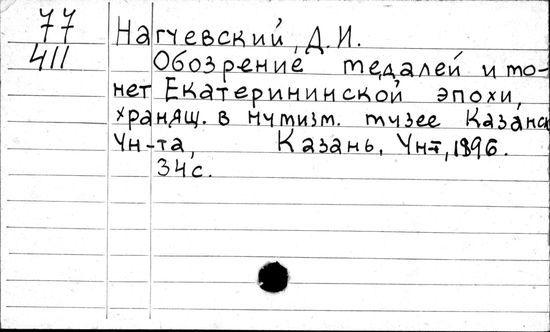 77
411
Нагуевский, Д. И.
Обозрение медалей и мо-
нет Екатерининской эпохи,
хранящ. в нумизм. музее Казанск
Ун-та, Казань, Ун-т, 1896.
34 с.